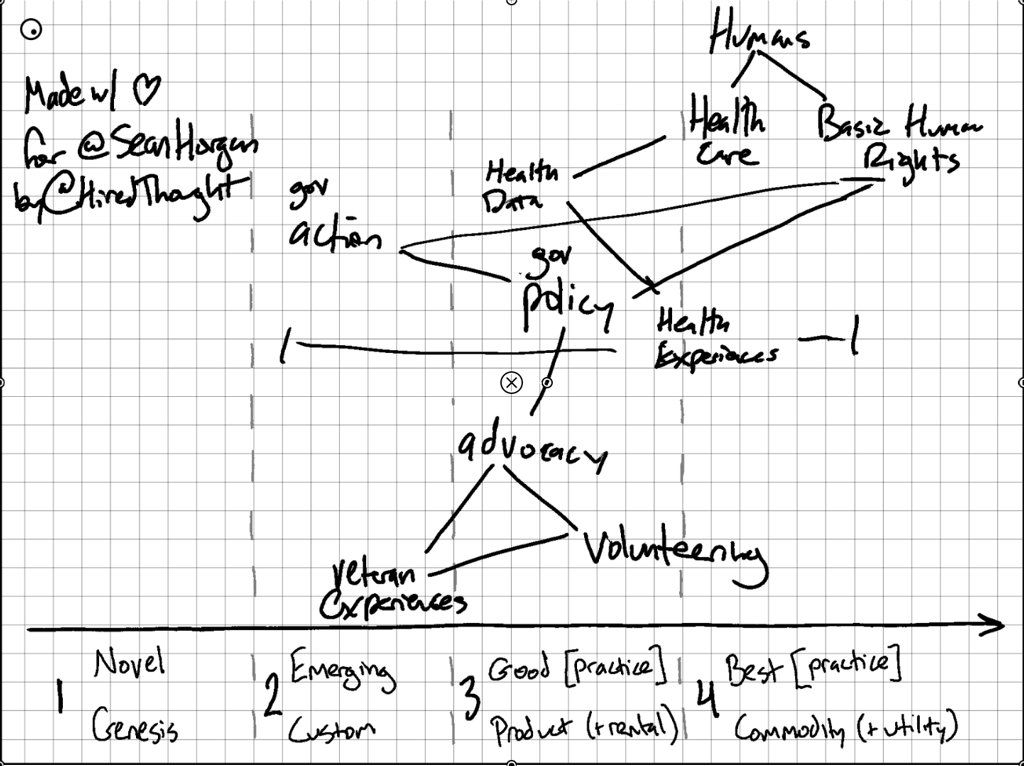 Humans
Made w/ ♡
for @SeanHorgan
by @HiredThought
Health
Care
Basic Human
Rights
Health
Data
gov
action
gov
policy
Health
Experiences
advocacy
Volunteering
Veteran
Experiences
1 Novel
Genesis
2 Emerging
Custom
3 Good [practice]
Product (+rental)
4 Best [practice]
Commodity (+utility)